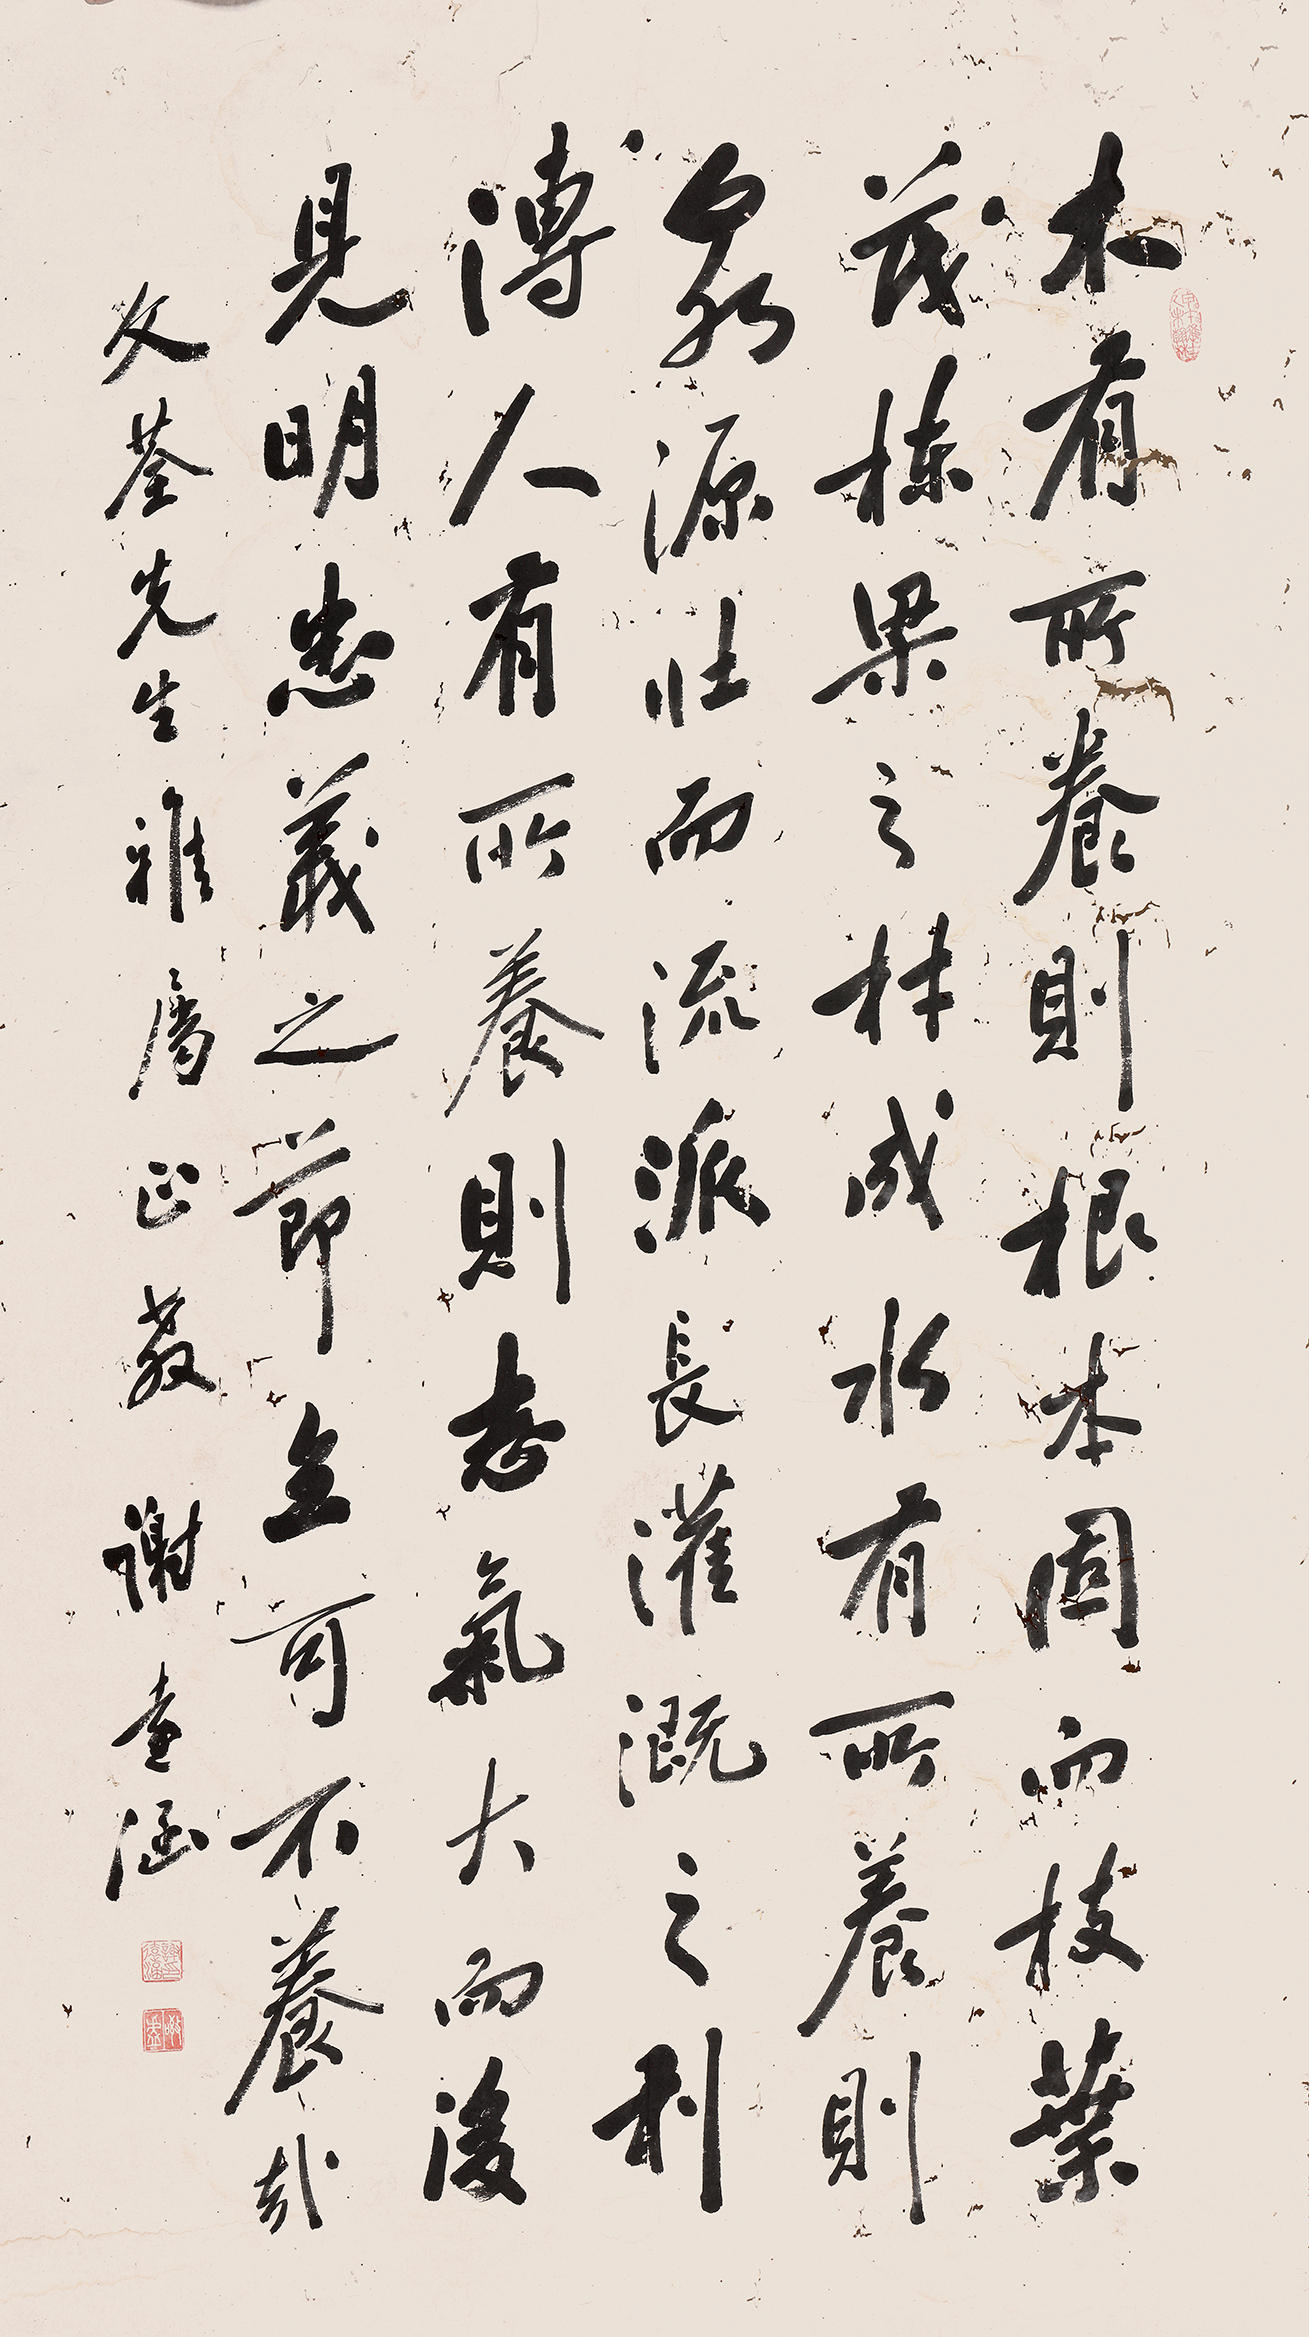 木有所養則根本固而枝葉
茂棟梁之材成水有所養則
泉源壯而流派長灌溉之利
溥人有所養則志氣大而後
見明忠義之節全可不養哉
文荃先生雅屬正教 謝遠涵